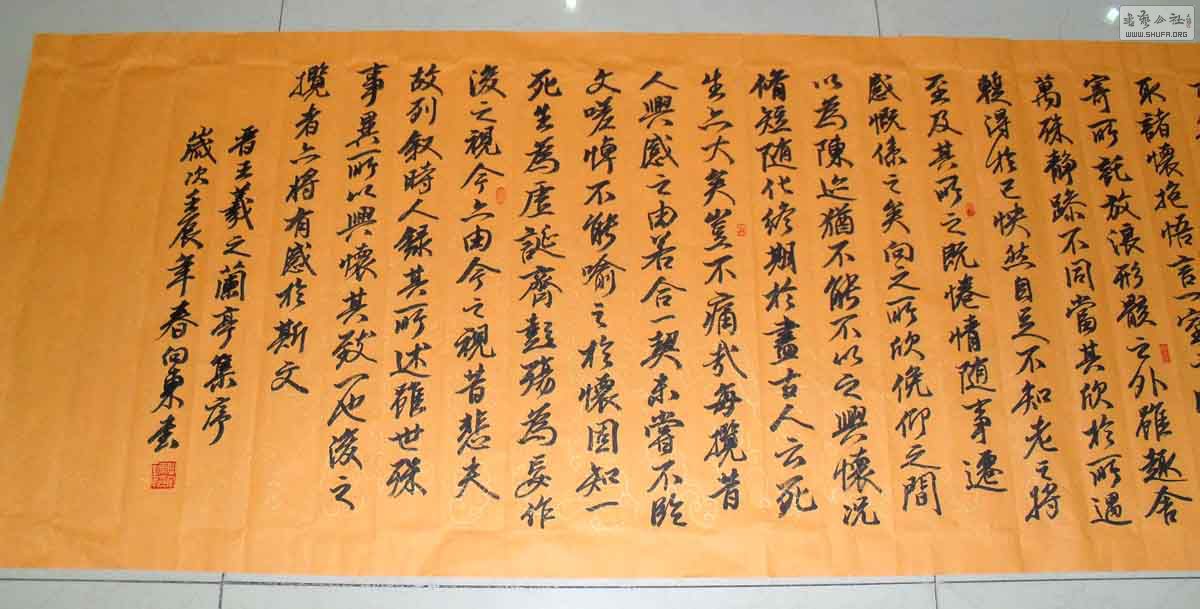 取諸懷抱悟言一室
寄所託放浪形骸之外雖趣舍
萬殊靜躁不同當其欣於所遇
暫得於己怏然自足不知老之將
至及其所之既惓情隨事遷
感慨係之矣向之所欣俛仰之間
以為陳迹猶不能不以之興懷況
脩短隨化終期於盡古人云死
生亦大矣豈不痛哉每攬昔
人興感之由若合一契未嘗不臨
文嗟悼不能喻之於懷固知一
死生為虛誕齊彭殤為妄作
後之視今亦由今之視昔悲夫
故列叙時人錄其所述雖世殊
事異所以興懷其致一也後之
攬者亦將有感於斯文
晉王羲之蘭亭集序
歲次壬辰年春向東書
WWW.SHUFA.ORG